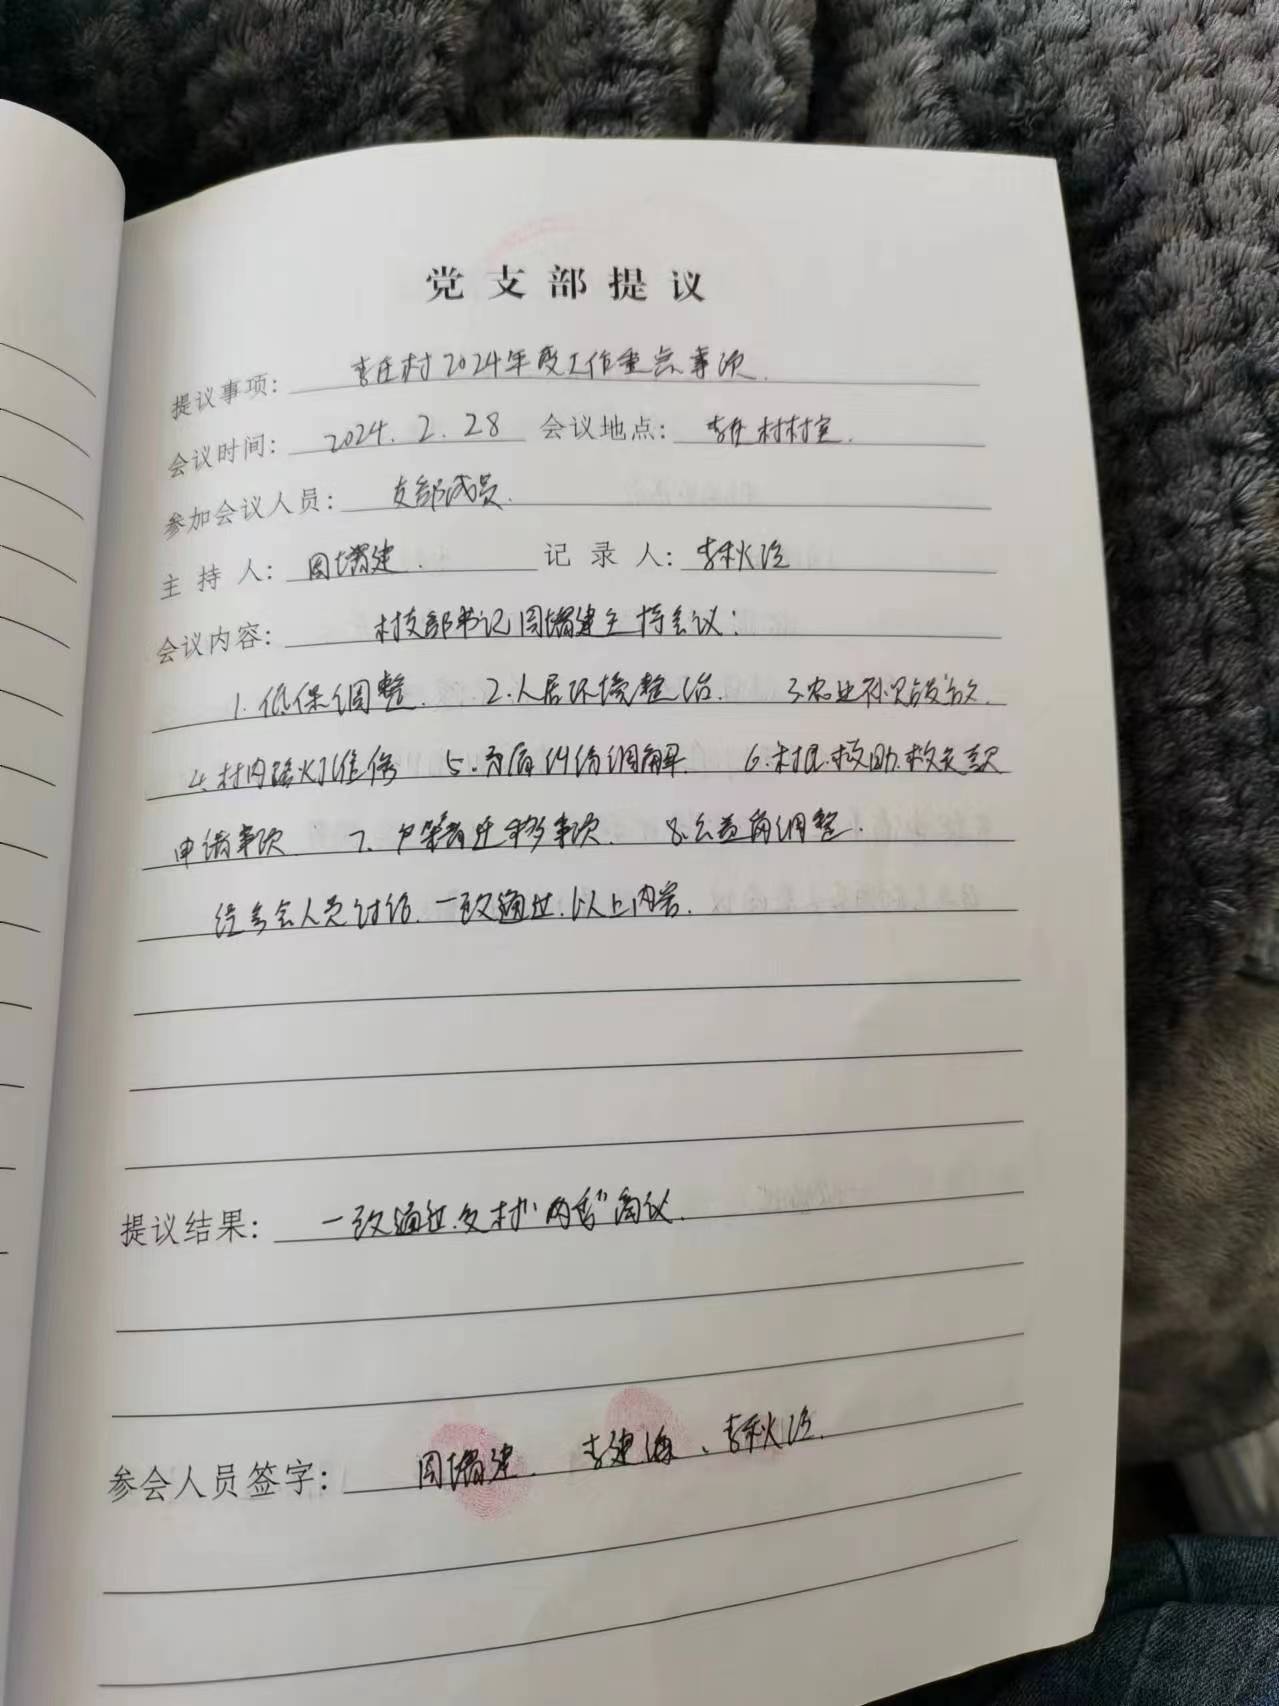 党支部提议
提议事项: 李庄村2024年度工作重点事项.
会议时间: 2024.2.28 会议地点: 李庄村村室.
参加会议人员: 支部成员.
主持人: 周增建. 记录人: 李秋玲
会议内容: 村支部书记周增建主持会议:
1.低保调整. 2.人居环境整治. 3.农业补贴发放.
4.村内路灯维修 5.矛盾纠纷调解. 6.村民救助.救灾款
申请事项. 7.户籍迁移事项. 8.公益岗调整.
经参会人员讨论.一致通过.以上内容.
提议结果: 一致通过.交村“两委”商议.
参会人员签字: 周增建. 李建海、李秋玲.